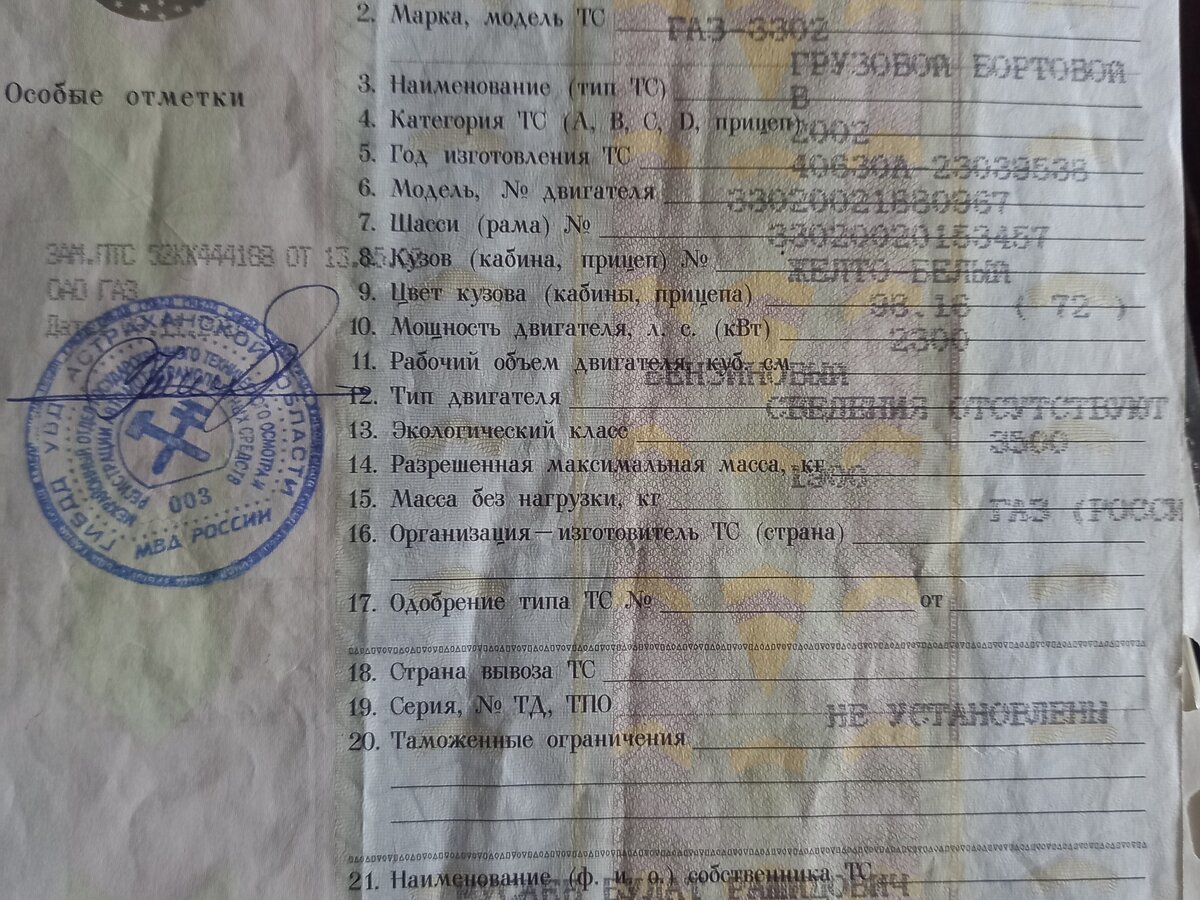 Особые отметки
ЗАМ.ПТС 52КК444168 ОТ 13.
ОАО ГАЗ
ГИБДД УВД АСТРАХАНСКОЙ ОБЛАСТИ
МВД РОССИИ
003
2. Марка, модель ТС ГАЗ-3302
3. Наименование (тип ТС) ГРУЗОВОЙ БОРТОВОЙ
4. Категория ТС (А, В, С, D, прицеп) В
5. Год изготовления ТС 2002
6. Модель, № двигателя 40630А-23039538
7. Шасси (рама) № 33020021880967
8. Кузов (кабина, прицеп) № 33020020153457
9. Цвет кузова (кабины, прицепа) ЖЕЛТО-БЕЛЫЙ
10. Мощность двигателя, л. с. (кВт) 98.16 ( 72 )
11. Рабочий объем двигателя, куб. см 2300
12. Тип двигателя БЕНЗИНОВЫЙ
13. Экологический класс СВЕДЕНИЯ ОТСУТСТВУЮТ
14. Разрешенная максимальная масса, кг 3500
15. Масса без нагрузки, кг 1900
16. Организация—изготовитель ТС (страна) ГАЗ (РОССИ
17. Одобрение типа ТС № от
18. Страна вывоза ТС
19. Серия, № ТД, ТПО
20. Таможенные ограничения НЕ УСТАНОВЛЕНЫ
21. Наименование (ф. и. о.) собственника ТС
БУЛАТ РАШИДОВИЧ